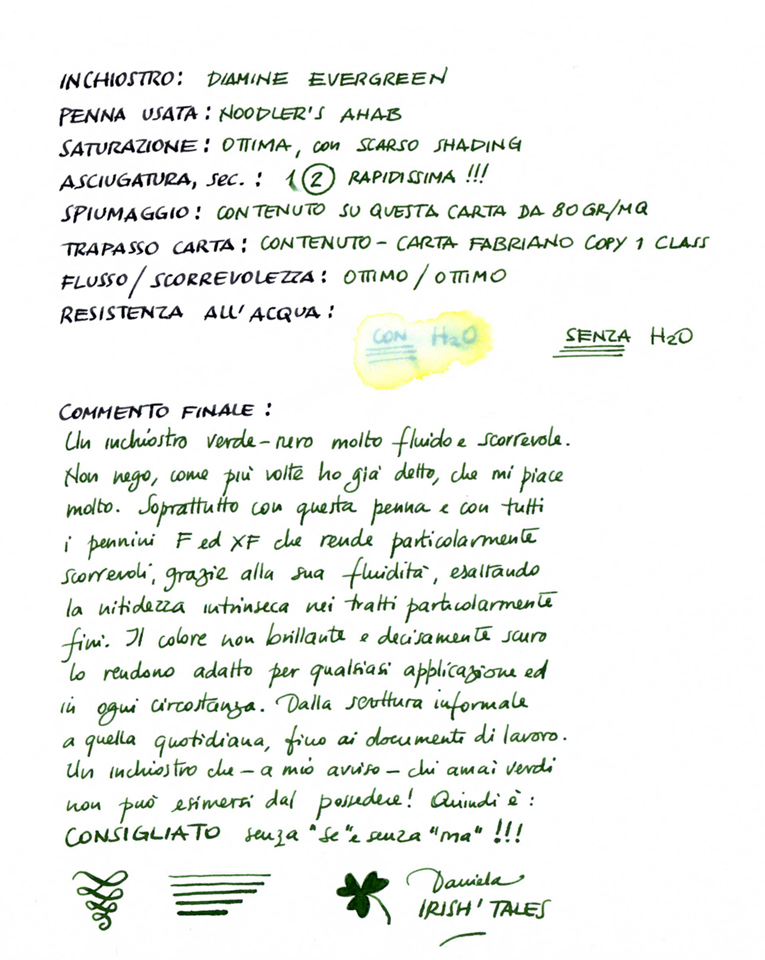 INCHIOSTRO: DIAMINE EVERGREEN
PENNA USATA: NOODLER'S AHAB
SATURAZIONE: OTTIMA, con SCARSO SHADING
ASCIUGATURA, sec.: 1 2 RAPIDISSIMA !!!
SPIUMAGGIO: CONTENUTO SU QUESTA CARTA DA 80 GR/MQ
TRAPASSO CARTA: CONTENUTO - CARTA FABRIANO COPY 1 CLASS
FLUSSO/SCORREVOLEZZA: OTTIMO/OTTIMO
RESISTENZA ALL'ACQUA:
CON H2O SENZA H2O
COMMENTO FINALE:
Un inchiostro verde-nero molto fluido e scorrevole.
Non nego, come più volte ho già detto, che mi piace
molto. Soprattutto con questa penna e con tutti
i pennini F ed XF che rende particolarmente
scorrevoli, grazie alla sua fluidità, esaltando
la nitidezza intrinseca nei tratti particolarmente
fini. Il colore non brillante e decisamente scuro
lo rendono adatto per qualsiasi applicazione ed
in ogni circostanza. Dalla scrittura informale
a quella quotidiana, fino ai documenti di lavoro.
Un inchiostro che - a mio avviso - chi ama i verdi
non può esimersi dal possedere! Quindi è:
CONSIGLIATO senza "se" e senza "ma" !!!
Daniela
IRISH' TALES